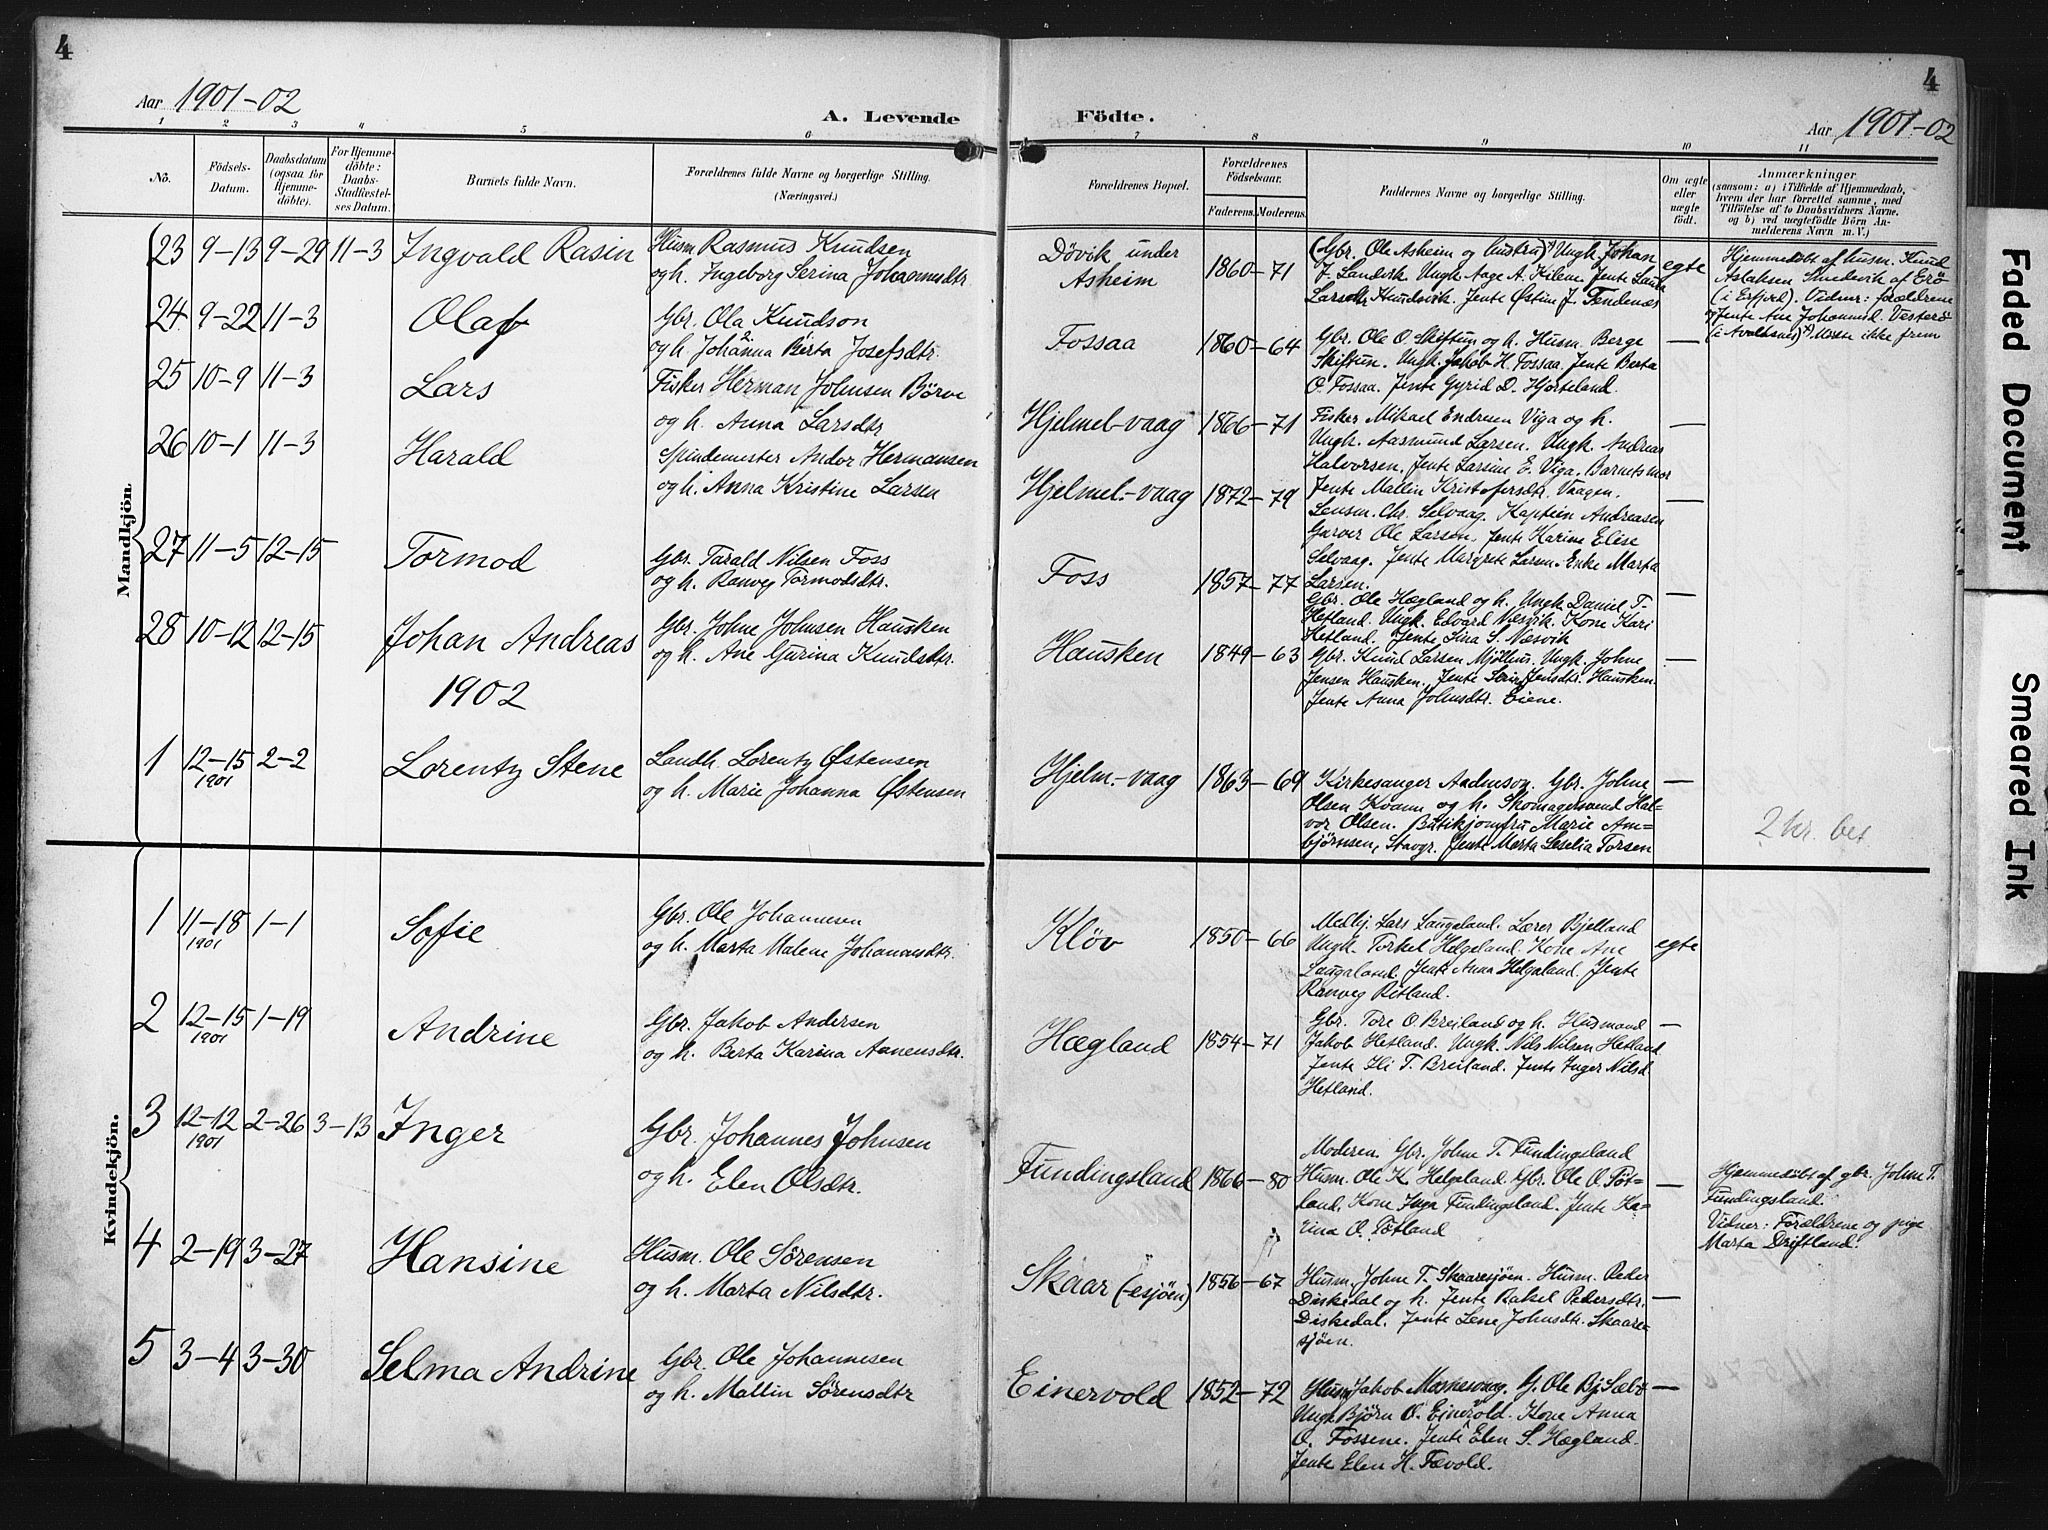 4
Aar 1901-02
A. Levende
1 2 3 4 5 6
Nö.
Födsels-Datum.
Daabsdatum (ogsaa for Hjemme-döbte).
For Hjemme-döbte: Daabs-Stadfæstel-ses Datum.
Barnets fulde Navn.
Forældrenes fulde Navne og borgerlige Stilling.
(Næringsvei.)
Mandkjön
23 9-13 9-29 11-3 Ingvald Rasin Husm Rasmus Knudsen
og h. Ingeborg Serina Johannesdtr
24 9-22 11-3 Olaf Gbr. Ola Knudson
og h. Johanna Berta Josefsdtr.
25 10-9 11-3 Lars Fisker Herman Johnsen Börve
og h. Anna Larsdtr
26 10-1 11-3 Harald Spindemester Andor Hermansen
og h. Anna Kristine Larsen
27 11-5 12-15 Tormod Gbr. Tarald Nilsen Foss
og h. Ranveg Tormodsdtr.
28 10-12 12-15 Johan Andreas Gbr. Johne Johnsen Hausken
og h. Ane Gurina Knudsdtr.
1902
1 12-15 2-2 Lorentz Stene Landh. Lorentz Østensen
1901 og h. Marie Johanna Østensen
Kvindekjön.
1 11-18 1-1 Sofie Gbr. Ole Johannesen
1901 og h. Marta Malene Johannesdtr.
2 12-15 1-19 Andrine Gbr. Jakob Andersen
1901 og h. Berta Karina Aanensdtr.
3 12-12 2-26 3-13 Inger Gbr. Johannes Johnsen
1901 og h. Elen Olsdtr.
4 2-19 3-27 Hansine Husm. Ole Sørensen
og h. Marta Nilsdtr.
5 3-4 3-30 Selma Andrine Gbr. Ole Johannesen
og h. Mallin Sørensdtr
4
Födte.
Aar 1901-02
7 8 9 10 11
Forældrenes Bopæl.
Forældrenes Födselsaar.
Faderens. Moderens.
Faddernes Navne og borgerlige Stilling.
Om ægte eller uægte födt.
Anmærkninger
(saasom: a) i Tilfælde af Hjemmedaab,
hvem der har forrettet samme, med
Tilföielse af to Daabsvidners Navne.
og b) ved uægtefödte Börn An-
melderens Navn m. V.)
Døvik under
Asheim 1860-71
(Gbr. Ole Asheim og hustru)x) Ungk. Johan
J. Landvik. Ungk. Aage A. Kilene Jente Laura
Larsdtr Knudsvik. Jente Østine J. Tendenæs
egte
Hjemmedøbt af husm. Knud
Aslaksen Smedvik af Erö
(i Erfjord). Vidner: forældrene
og jente Ane Johannesd. Vesterö
(i Avaldsnes) x) Mødte ikke frem
Fossaa 1860-64
Gbr. Ole O Skiftun og h. Husm. Berge
Skiftun. Ungk. Jakob H. Fossaa, Jente Berta
O. Fossaa. Jente Gyrid D. Hjorteland.
—
Hjelmel-vaag 1866-71
Fisker Mikael Endresen Viga og h.
Ungk. Aasmund Larsen. Ungk. Andreas
Halvorsen. Jente Larsine E. Viga. Barnets mor
—
Hjelmel.-vaag 1872-79
Jente Mallin Kristofersdtr. Vaagen.
Lensm. Chr. Selvaag. Kaptein Andreasen
Garver Ole Larsen. Jente Karine Elise
Selvaag. Jente Margrete Larsen. Enke Marta
Larsen.
—
Foss 1857-77
Gbr. Ole Hægland og h. Ungk. Daniel T.
Hetland. Ungk. Edvard Næsvik. Kone Kari
Hetland. Jente Sina S. Næsvik
—
Hausken 1849-63
Gbr. Knud Larsen Mjølhus. Ungk. Johne
Jensen Hausken. Jente Serine Jensdtr. Hausken.
Jente Anna Johnsdtr. Eiene.
—
Hjelm.-vaag 1863-69
Kirkesanger Anderson. Gbr. Johne
Olsen Kvame og h. Skomagersvend Hal-
vor Olsen. Butikjomfru Marie Am-
bjørnsen, Stavgr. Jente Marta Seselia Torsen
—
2 kr. bet
Kløv 1850-66
Medhj. Lars Laugeland. Lærer Bjelland
Ungk. Torkel Helgeland. Kone Ane
Laugaland. Jente Anna Helgaland. Jente
Ranveg Ritland.
egte
Hægland 1854-71
Gbr. Tore O. Breiland og h. Husmand
Jakob Hetland. Ungk. Nils Nilsen Hetland
Jente Eli T. Breiland. Jente Inger Nilsd
Hetland.
—
Fundingsland 1866-80
Moderen. Gbr. Johne T. Fundingsland
Husm. Ole K. Helgeland. Gbr. Ole O. Töt-
land. Kone Inga Fundingsland. Jente Ka-
rina O. Tötland
—
Hjemmedøbt af gbr. Johne T.
Fundingsland.
Vidner: Forældrene og pige
Marta Driftland.
Skaar (-esjøen) 1856-67
Husm. Johne T. Skaaresjøen. Husm. Peder
Diskedal og h. Jente Rakel Pedersdtr.
Diskedal. Jente Lene Johnsdtr. Skaare-
sjøen.
—
Einervold 1852-72
Husm Jakob Moskesvaag. G. Ole Bj Sæbö
Ungk Bjørn O. Einervold. Kone Anna
O. Fossene. Jente Elen S. Hægland.
Jente Elen H. Tævold.
—
Faded Document
Smeared Ink